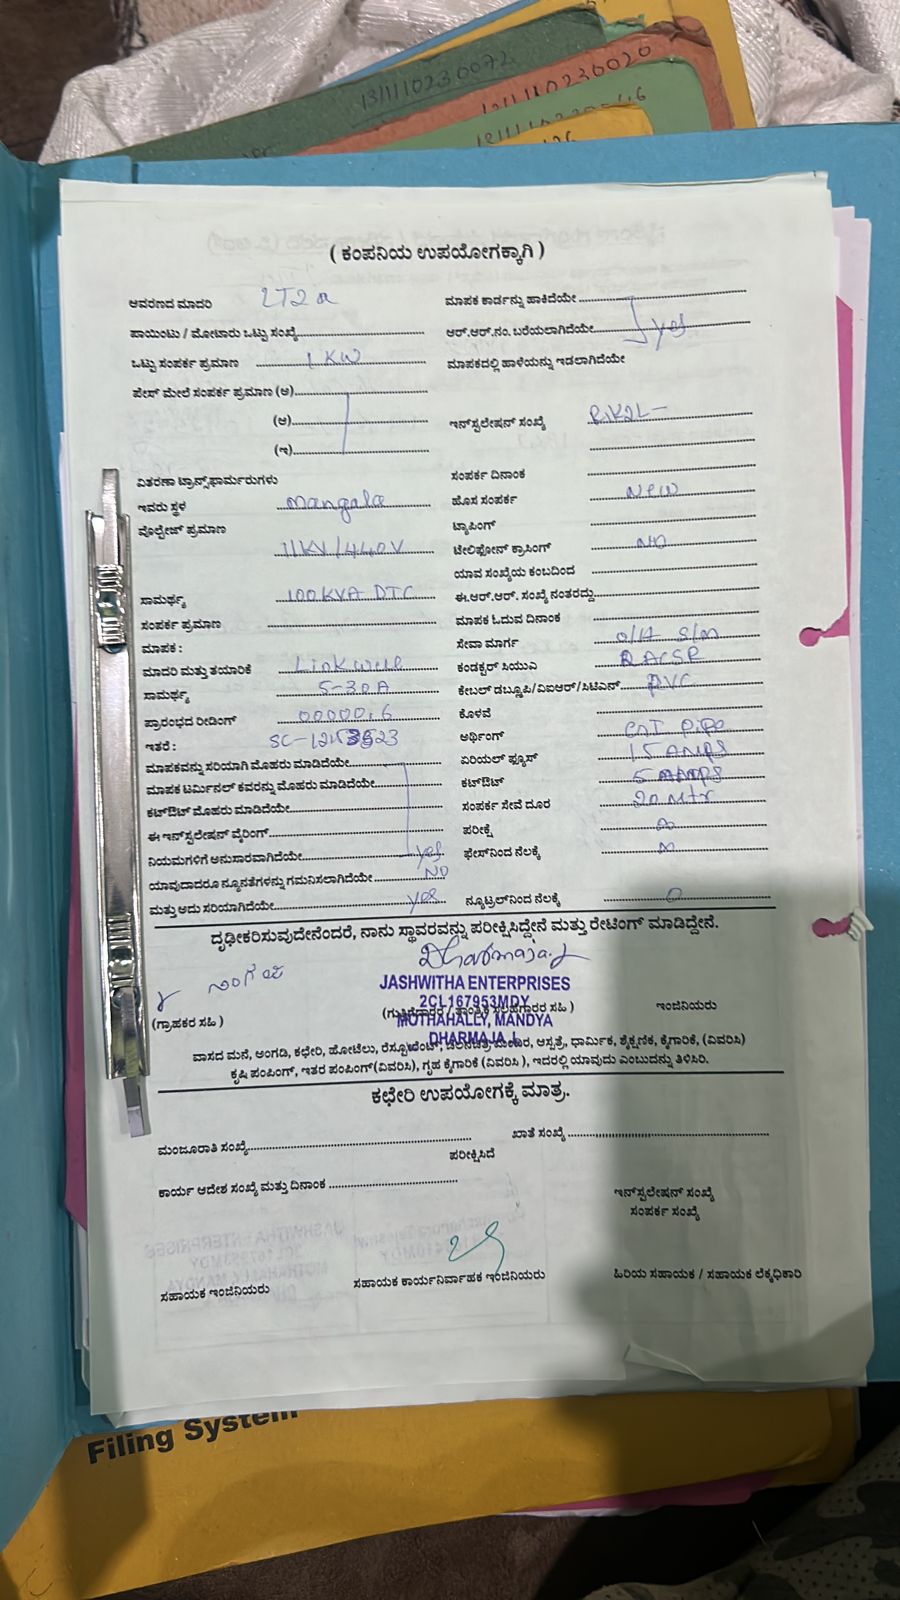 131111023 0072
( ಕಂಪನಿಯ ಉಪಯೋಗಕ್ಕಾಗಿ )
ಆವರಣದ ಮಾದರಿ LT2a
ಮಾಪಕ ಕಾರ್ಡನ್ನು ಹಾಕಿದೆಯೇ
ಪಾಯಿಂಟು / ಮೋಟಾರು ಒಟ್ಟು ಸಂಖ್ಯೆ
ಆರ್.ಆರ್.ನಂ. ಬರೆಯಲಾಗಿದೆಯೇ yes
ಒಟ್ಟು ಸಂಪರ್ಕ ಪ್ರಮಾಣ 1 KW
ಮಾಪಕದಲ್ಲಿ ಹಾಳೆಯನ್ನು ಇಡಲಾಗಿದೆಯೇ
ಫೇಸ್ ಮೇಲೆ ಸಂಪರ್ಕ ಪ್ರಮಾಣ (ಅ)
(ಆ)
ಇನ್‌ಸ್ಟಲೇಷನ್ ಸಂಖ್ಯೆ
(ಇ)
ವಿತರಣಾ ಟ್ರಾನ್ಸ್‌ಫಾರ್ಮರುಗಳು
ಸಂಪರ್ಕ ದಿನಾಂಕ
ಇವರು ಸ್ಥಳ Mangala
ಹೊಸ ಸಂಪರ್ಕ New
ವೋಲ್ಟೇಜ್ ಪ್ರಮಾಣ
ಟ್ಯಾಪಿಂಗ್
11KV/440V
ಟೇಲಿಫೋನ್ ಕ್ರಾಸಿಂಗ್ NO
ಯಾವ ಸಂಖ್ಯೆಯ ಕಂಬದಿಂದ
ಸಾಮರ್ಥ್ಯ 100KVA DTC
ಈ.ಆರ್.ಆರ್. ಸಂಖ್ಯೆ ನಂತರದ್ದು
ಸಂಪರ್ಕ ಪ್ರಮಾಣ
ಮಾಪಕ ಓದುವ ದಿನಾಂಕ
ಮಾಪಕ :
ಸೇವಾ ಮಾರ್ಗ O/H S/M
ಮಾದರಿ ಮತ್ತು ತಯಾರಿಕೆ Linkwell
ಕಂಡಕ್ಟರ್ ಸಿಯುಎ RACSR
ಸಾಮರ್ಥ್ಯ 5-30A
ಕೇಬಲ್ ಡಬ್ಲೂಪಿ/ವಿಐಆರ್/ಸಿಟಿಎಸ್ PVC
ಪ್ರಾರಂಭದ ರೀಡಿಂಗ್ 00000.6
ಕೊಳವೆ
ಇತರೆ :
ಅರ್ಥಿಂಗ್ GI Pipe
ಮಾಪಕವನ್ನು ಸರಿಯಾಗಿ ಮೊಹರು ಮಾಡಿದೆಯೇ
ಏರಿಯಲ್ ಫ್ಯೂಸ್ 15 AMPS
ಮಾಪಕ ಟರ್ಮಿನಲ್ ಕವರನ್ನು ಮೊಹರು ಮಾಡಿದೆಯೇ
ಕಟ್‌ಔಟ್ 5 AMPS
ಕಟ್‌ಔಟ್ ಮೊಹರು ಮಾಡಿದೆಯೇ
ಸಂಪರ್ಕ ಸೇವೆ ದೂರ 20 Mtr
ಈ ಇನ್‌ಸ್ಟಲೇಷನ್ ವೈರಿಂಗ್
ಪರೀಕ್ಷೆ
ನಿಯಮಗಳಿಗೆ ಅನುಸಾರವಾಗಿದೆಯೇ yes
ಫೇಸ್‌ನಿಂದ ನೆಲಕ್ಕೆ
ಯಾವುದಾದರೂ ನ್ಯೂನತೆಗಳನ್ನು ಗಮನಿಸಲಾಗಿದೆಯೇ NO
ಮತ್ತು ಅದು ಸರಿಯಾಗಿದೆಯೇ yes
ನ್ಯೂಟ್ರಲ್‌ನಿಂದ ನೆಲಕ್ಕೆ 0
ದೃಢೀಕರಿಸುವುದೇನೆಂದರೆ, ನಾನು ಸ್ಥಾವರವನ್ನು ಪರೀಕ್ಷಿಸಿದ್ದೇನೆ ಮತ್ತು ರೇಟಿಂಗ್ ಮಾಡಿದ್ದೇನೆ.
Dharmaja.J
JASHWITHA ENTERPRISES
2CL167953MDY
(ಗ್ರಾಹಕರ ಸಹಿ )
(ಗುತ್ತಿಗೆದಾರರ / ತಾಂತ್ರಿಕ ಸಲಹೆಗಾರರ ಸಹಿ )
ಇಂಜಿನಿಯರು
MOTHAHALLY, MANDYA
DHARMAJA. J.
ವಾಸದ ಮನೆ, ಅಂಗಡಿ, ಕಛೇರಿ, ಹೋಟೆಲು, ರೆಸ್ಟೂರೆಂಟ್, ಚಲನಚಿತ್ರ ಮಂದಿರ, ಆಸ್ಪತ್ರೆ, ಧಾರ್ಮಿಕ, ಶೈಕ್ಷಣಿಕ, ಕೈಗಾರಿಕೆ, (ವಿವರಿಸಿ)
ಕೃಷಿ ಪಂಪಿಂಗ್, ಇತರ ಪಂಪಿಂಗ್(ವಿವರಿಸಿ), ಗೃಹ ಕೈಗಾರಿಕೆ (ವಿವರಿಸಿ ), ಇದರಲ್ಲಿ ಯಾವುದು ಎಂಬುದನ್ನು ತಿಳಿಸಿರಿ.
ಕಛೇರಿ ಉಪಯೋಗಕ್ಕೆ ಮಾತ್ರ.
ಮಂಜೂರಾತಿ ಸಂಖ್ಯೆ
ಖಾತೆ ಸಂಖ್ಯೆ
ಪರೀಕ್ಷಿಸಿದೆ
ಕಾರ್ಯ ಆದೇಶ ಸಂಖ್ಯೆ ಮತ್ತು ದಿನಾಂಕ
ಇನ್‌ಸ್ಟಲೇಷನ್ ಸಂಖ್ಯೆ
ಸಂಪರ್ಕ ಸಂಖ್ಯೆ
ಸಹಾಯಕ ಇಂಜಿನಿಯರು
ಸಹಾಯಕ ಕಾರ್ಯನಿರ್ವಾಹಕ ಇಂಜಿನಿಯರು
ಹಿರಿಯ ಸಹಾಯಕ / ಸಹಾಯಕ ಲೆಕ್ಕಧಿಕಾರಿ
Filing System